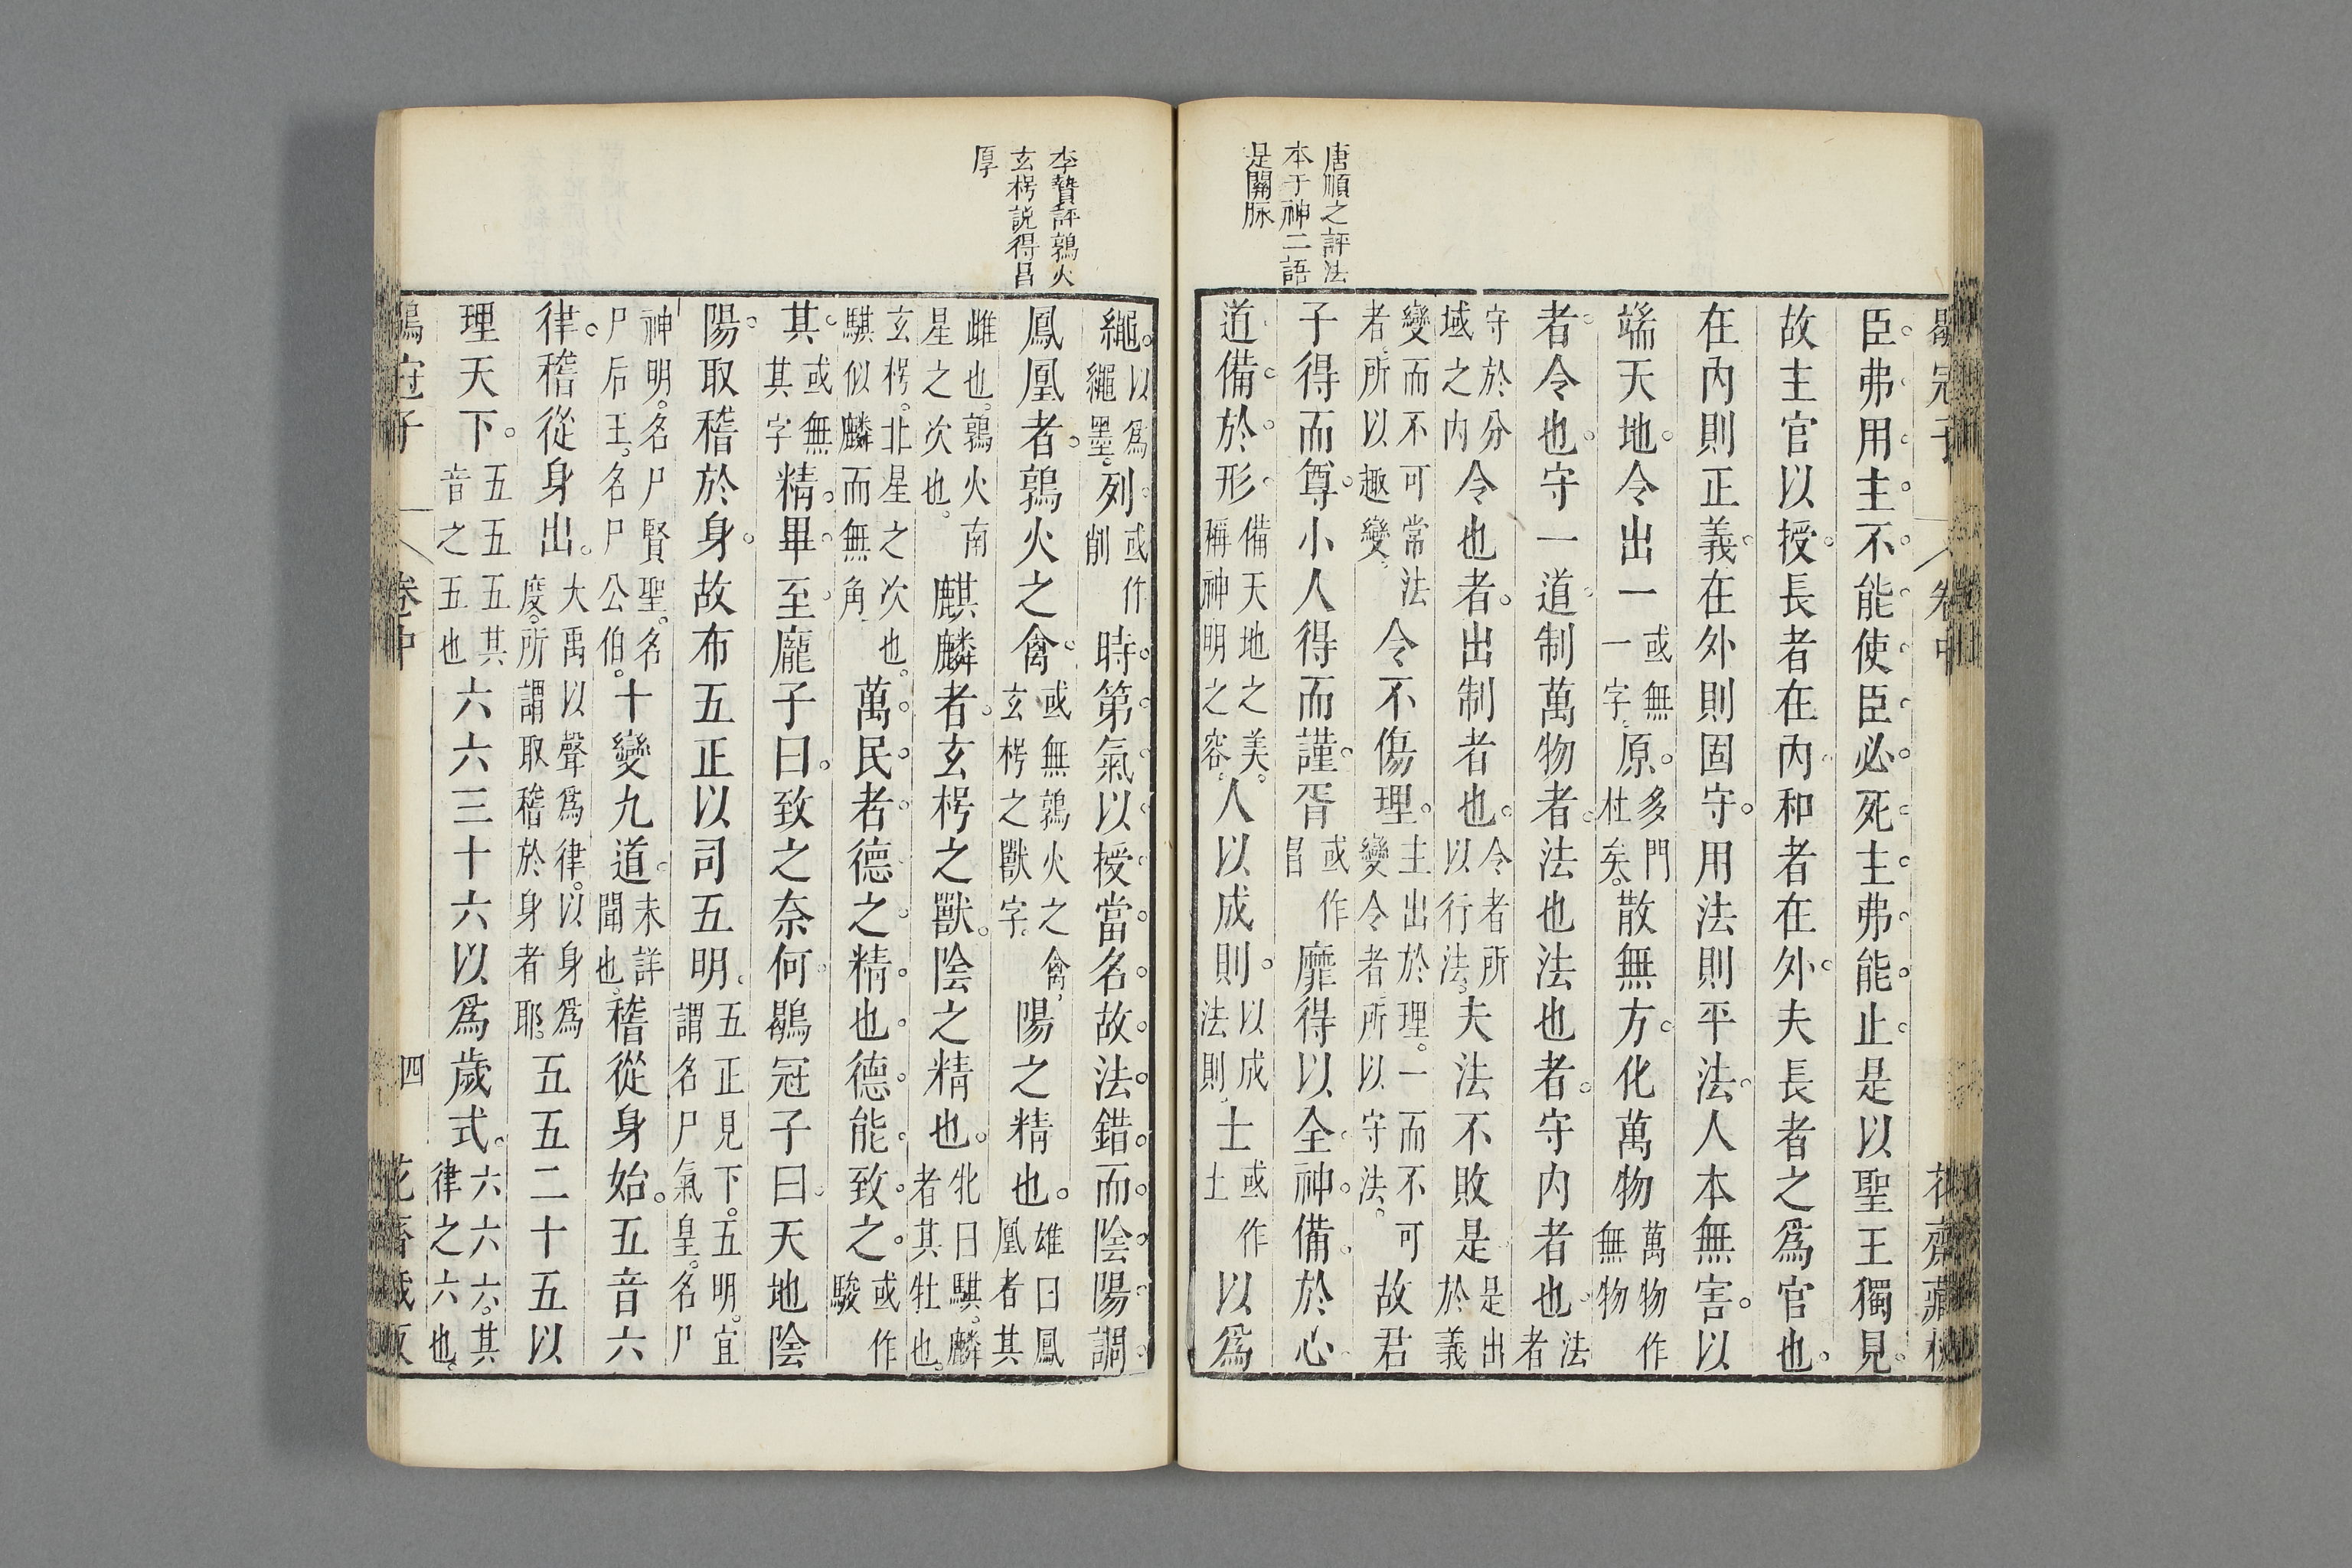 唐順之評法
本于神二語
是關脉
臣弗用主不能使臣必死主弗能止是以聖王獨見
故主官以授長者在內和者在外夫長者之爲官也
在內則正義在外則固守用法則平法人本無害以
端天地令出一或無一字原多門杜矣散無方化萬物萬物作無物
者令也守一道制萬物者法也法也者守內者也法者
守於分域之內令也者出制者也令者所以行法夫法不敗是是出於義
變而不可常法者所以趣變令不傷理主出於理一而不可變令者所以守法故君
子得而尊小人得而謹胥或作昌靡得以全神備於心
道備於形備天地之美稱神明之容人以成則以成法則士或作土以爲
李贄評鶉火
玄枵説得昌
厚
繩以爲繩墨列或作削時第氣以授當名故法錯而陰陽調
鳳凰者鶉火之禽或無鶉火之禽玄枵之獸字陽之精也雄曰鳳凰者其
雌也鶉火南星之次也麒麟者玄枵之獸陰之精也牝曰騏麟者其牡也
玄枵北星之次也騏似麟而無角萬民者德之精也德能致之或作駿
其或無其字精畢至龐子曰致之奈何鶡冠子曰天地陰
陽取稽於身故布五正以司五明五正見下五明宜謂名尸氣皇名尸
神明名尸賢聖名尸后王名尸公伯十變九道未詳聞也稽從身始五音六
律稽從身出大禹以聲爲律以身爲度所謂取稽於身者耶五五二十五以
理天下五五五其音之五也六六三十六以爲歲式六六六其律之六也
鶡冠子 卷中 四 花齋藏板